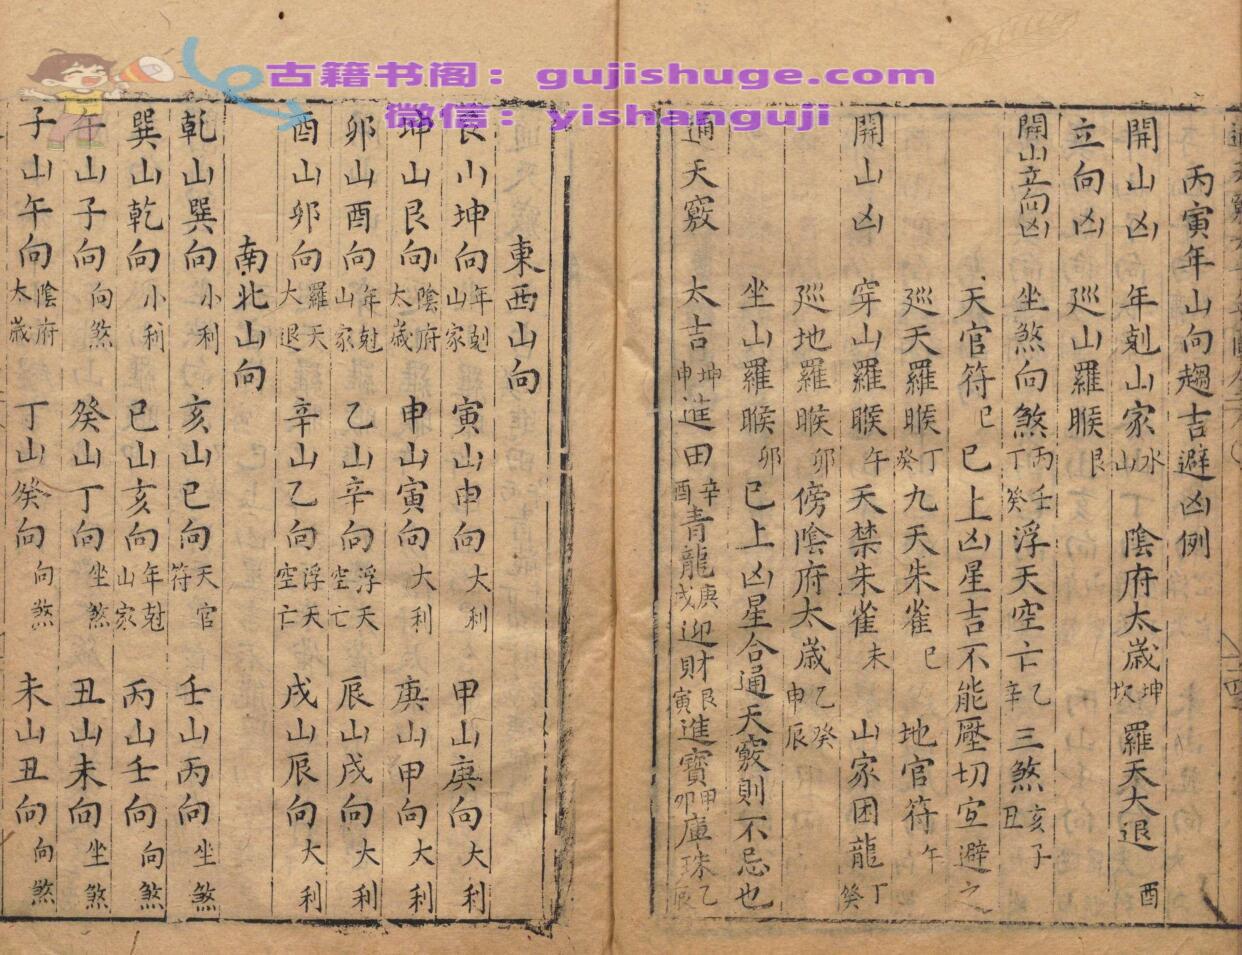 古籍书阁：gujishuge.com
微信：yishanguji
丙寅年山向趨吉避凶例
開山凶 年剋山家水山 陰府太歲坤坎 羅天大退酉
立向凶 廵山羅睺艮
開山立向凶 坐煞向煞丙壬丁癸 浮天空亡乙辛 三煞亥子丑
天官符巳 已上凶星吉不能壓切宜避之
廵天羅睺丁癸 九天朱雀巳 地官符午
開山凶 穿山羅睺午 天禁朱雀未 山家困龍丁癸
廵地羅睺卯 傍陰府太歲乙癸申辰
坐山羅睺卯 已上凶星合通天竅則不忌也
通天竅 太吉坤申 進田辛酉 青龍庚戌 迎財艮寅 進寶甲卯 庫珠乙辰
東西山向
艮山坤向年剋山家 寅山申向大利 甲山庚向大利
坤山艮向陰府太歲 申山寅向大利 庚山甲向大利
卯山酉向年尅山家 乙山辛向浮天空亡 辰山戌向大利
酉山卯向羅天大退 辛山乙向浮天空亡 戌山辰向大利
南北山向
乾山巽向小利 亥山巳向天官符 壬山丙向坐煞
巽山乾向小利 巳山亥向年尅山家 丙山壬向向煞
午山子向向煞 癸山丁向坐煞 丑山未向坐煞
子山午向陰府太歲 丁山癸向向煞 未山丑向向煞